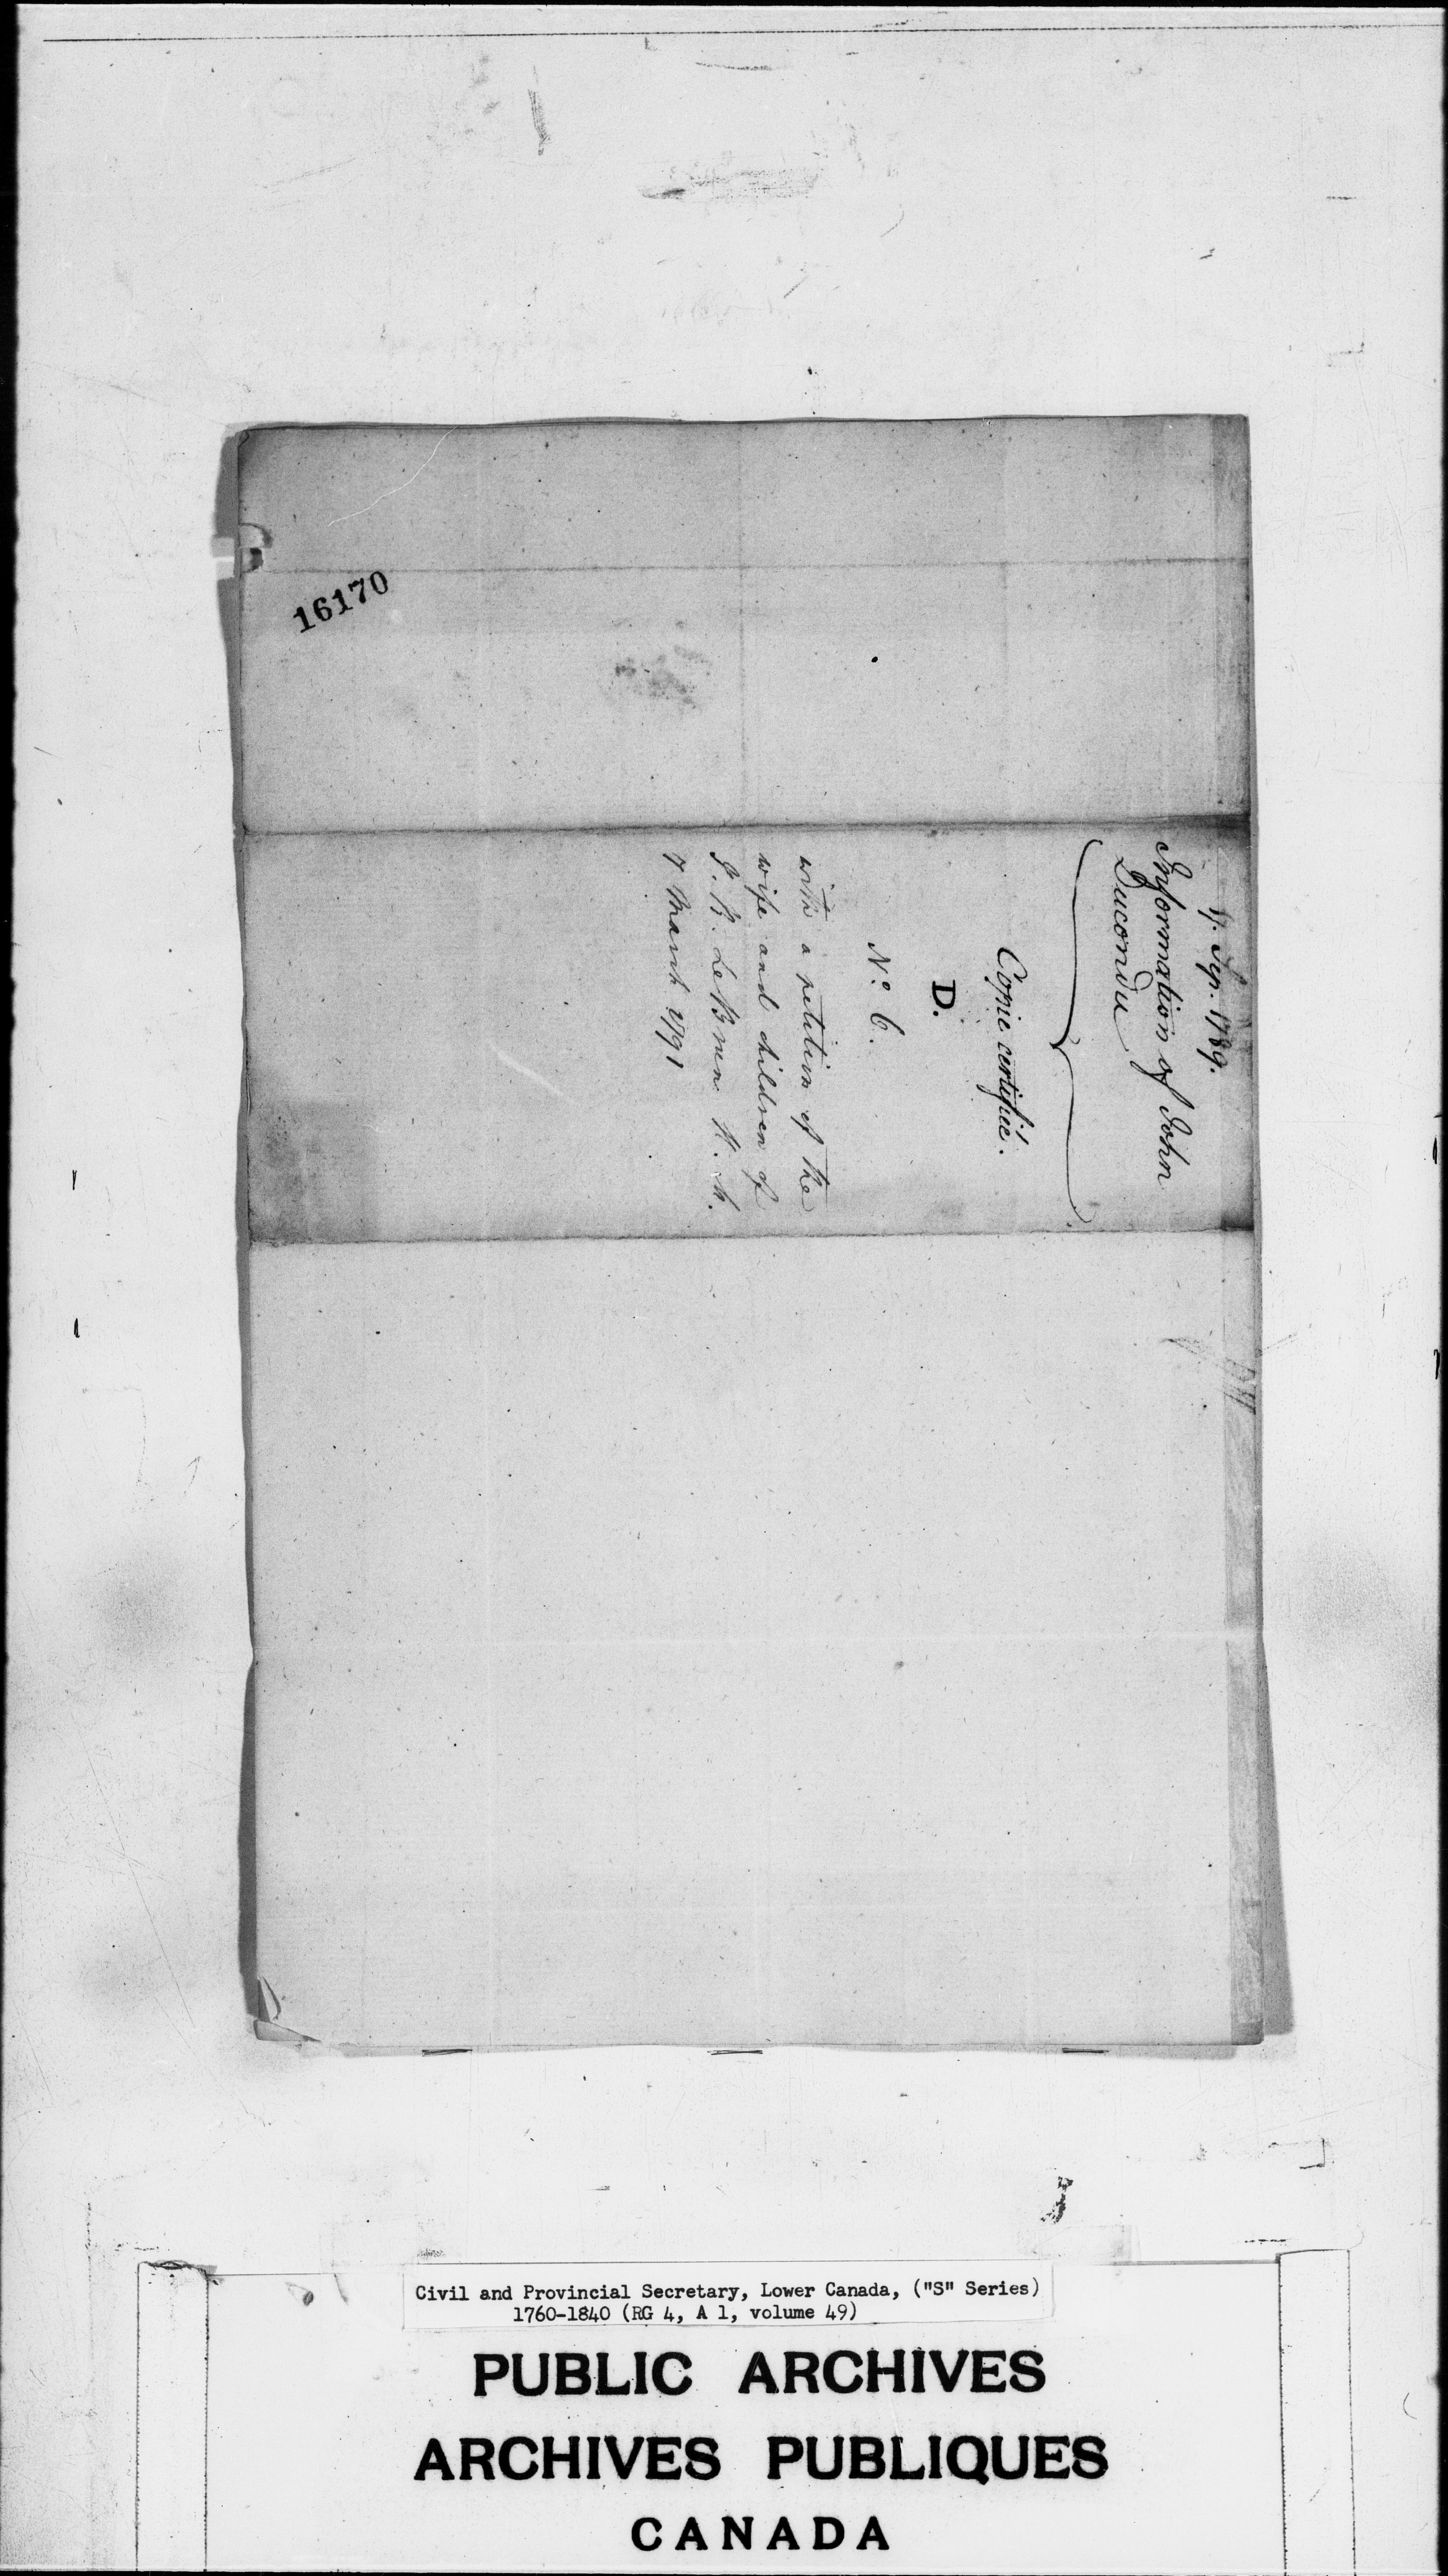 16170
17. Sep. 1789.
Information of John
Ducondu
Copie certifiée.
D.
No. 6.
with a petition of the
wife and children of
J. B. LeBrun
7 March 1791
Civil and Provincial Secretary, Lower Canada, ("S" Series)
1760-1840 (RG 4, A 1, volume 49)
PUBLIC ARCHIVES
ARCHIVES PUBLIQUES
CANADA